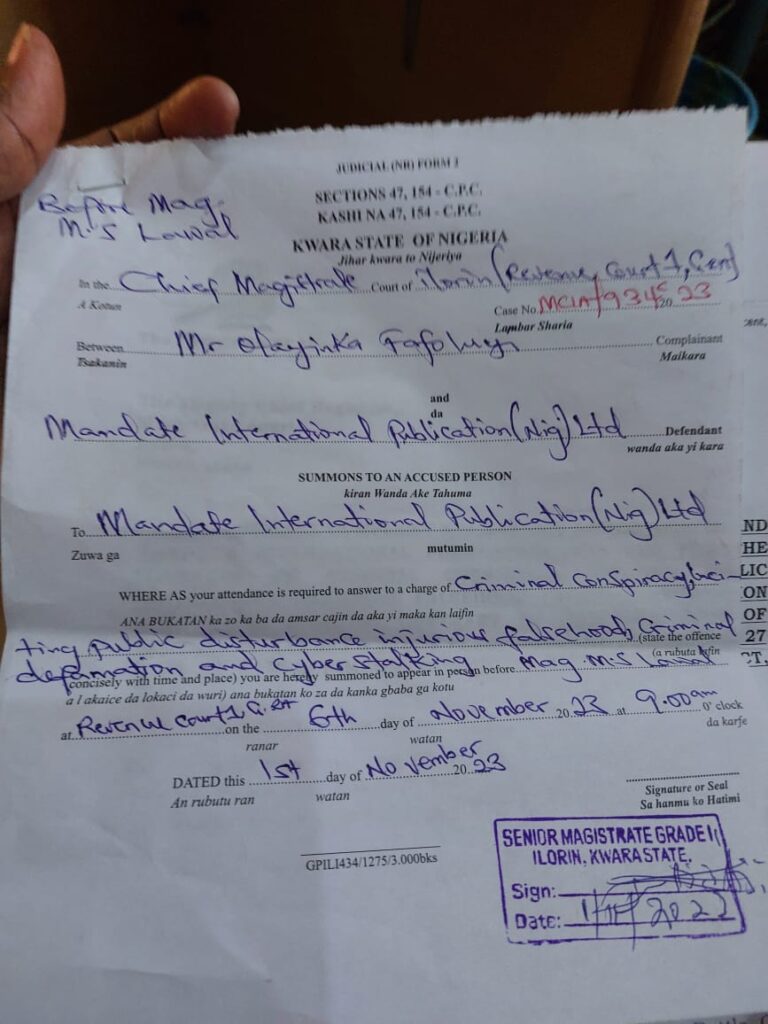 JUDICIAL (NR) FORM 2
Before Mag.
M.S Lawal
SECTIONS 47, 154 - C.P.C.
KASHI NA 47, 154 - C.P.C.
KWARA STATE OF NIGERIA
Jihar kwara to Nijeriya
In the Chief Magistrate Court of ilorin (Revenue, Court 1,
A Kotun
Case No. 20 23
Lambar Sharia
Between Mr Olayinka Complainant
Tsakanin Maikara
and
da
Mandate International Publication (Nig) Ltd Defendant
wanda aka yi kara
SUMMONS TO AN ACCUSED PERSON
kiran Wanda Ake Tahuma
To Mandate International Publication (Nig) Ltd
Zuwa ga mutumin
WHERE AS your attendance is required to answer to a charge of Criminal conspiracy, inci-
ANA BUKATAN ka zo ka ba da amsar cajin da aka yi maka kan laifin
ting public disturbance injurious falsehood, Criminal (state the offence
(a rubuta laifin
defamation and Cyber Stalking
concisely with time and place) you are hereby summoned to appear in person before Mag. M.S Lawal
a l akaice da lokaci da wuri) ana bukatan ko za da kanka gbaba ga kotu
at Revenue court 1, on the 6th day of November 20 23 at 9.00am 0' clock
ranar watan da karfe
DATED this 1st day of November 20 23
An rubutu ran watan
Signature or Seal
Sa hanmu ko Hatimi
GPILI434/1275/3.000bks
SENIOR MAGISTRATE GRADE I
ILORIN, KWARA STATE.
Sign:
Date:
ND
HE
LIC
ON
OF
27
CT.